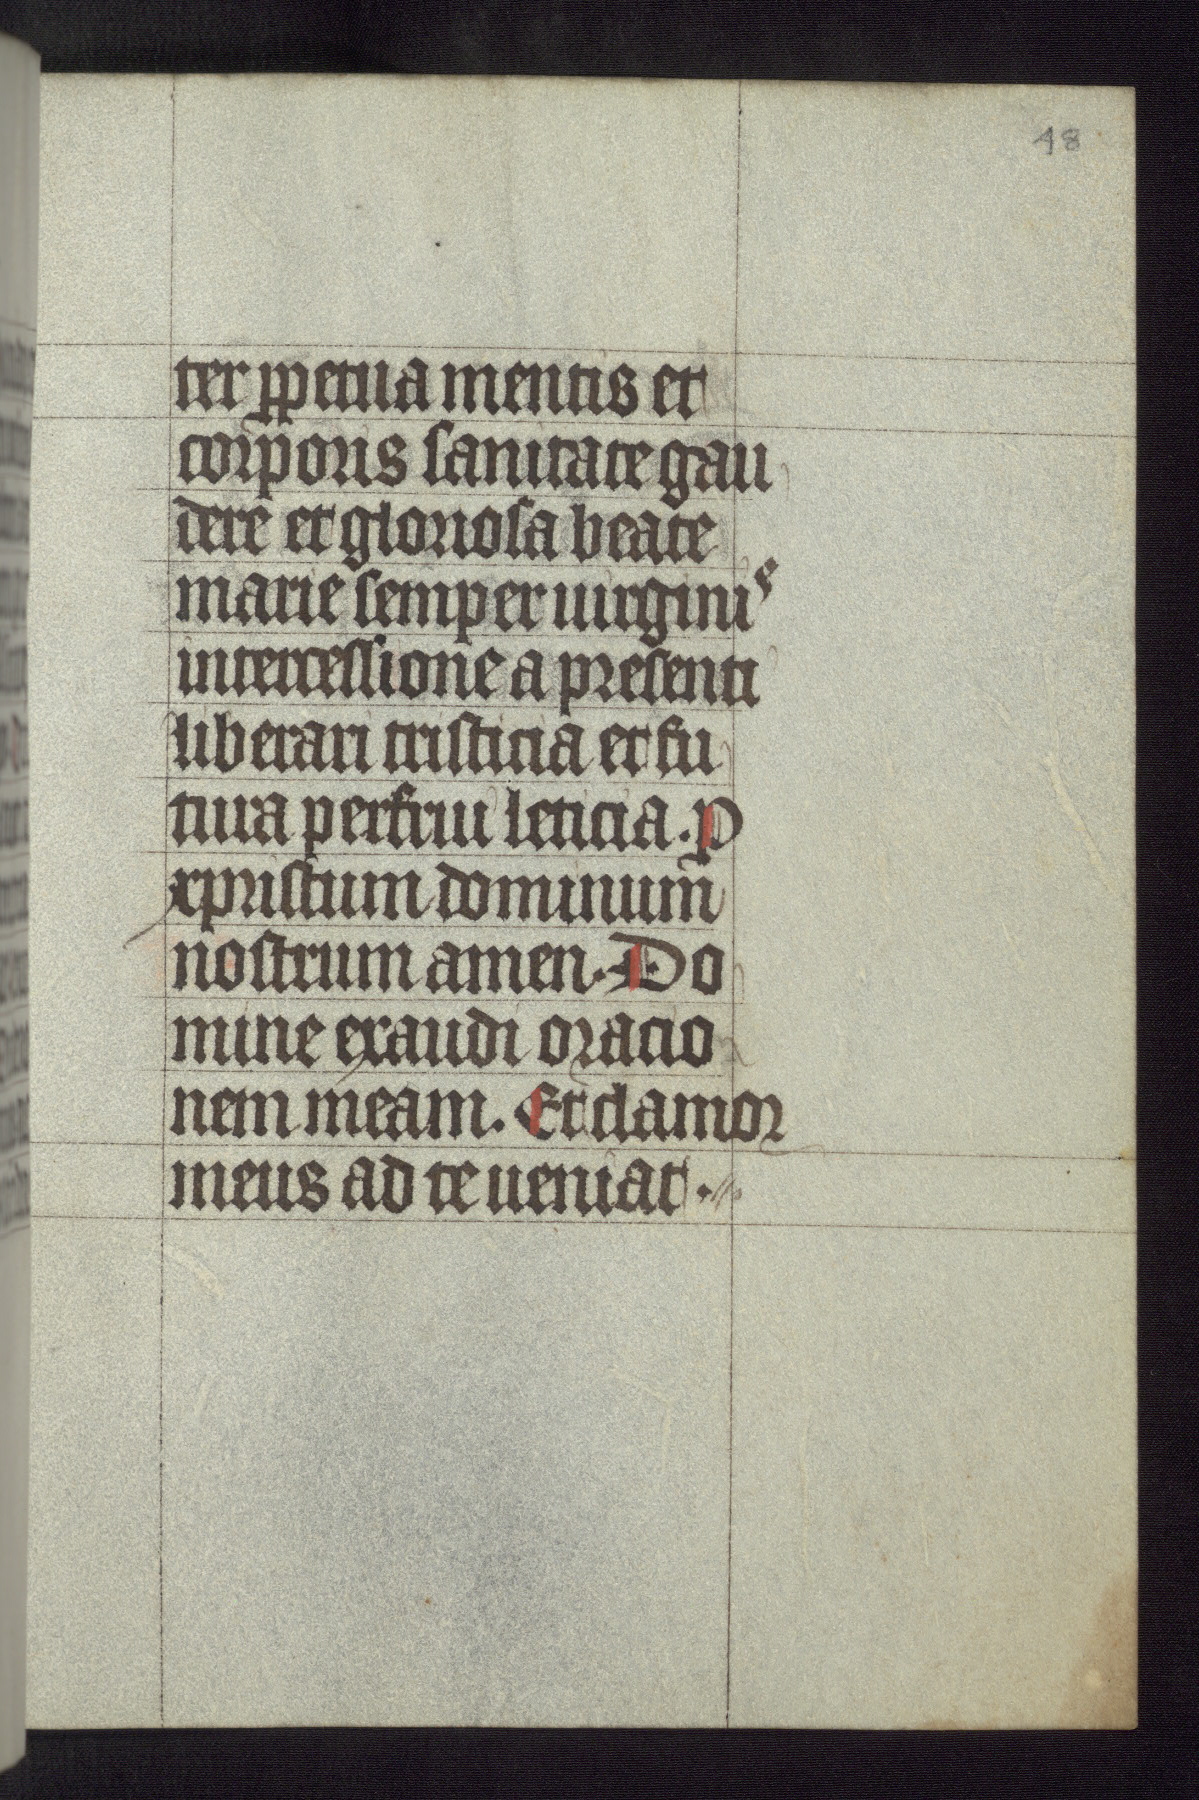 48
ter ꝑpetua mentis et
corporis sanitate gau
dere et gloriosa beate
marie semper uirginis
intercessione a presenti
liberari tristicia et fu
tura perfrui leticia. P
xpristum dominum
nostrum amen. Do
mine exaudi oracio
nem meam. Et clamor
meus ad te ueniat.